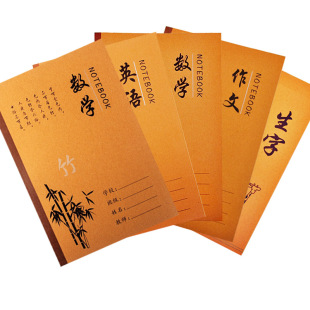 数学
NOTEBOOK
竹
学校:
班级:
姓名:
教师:
英语
NOTEBOOK
数学
NOTEBOOK
作文
NOTEBOOK
生字